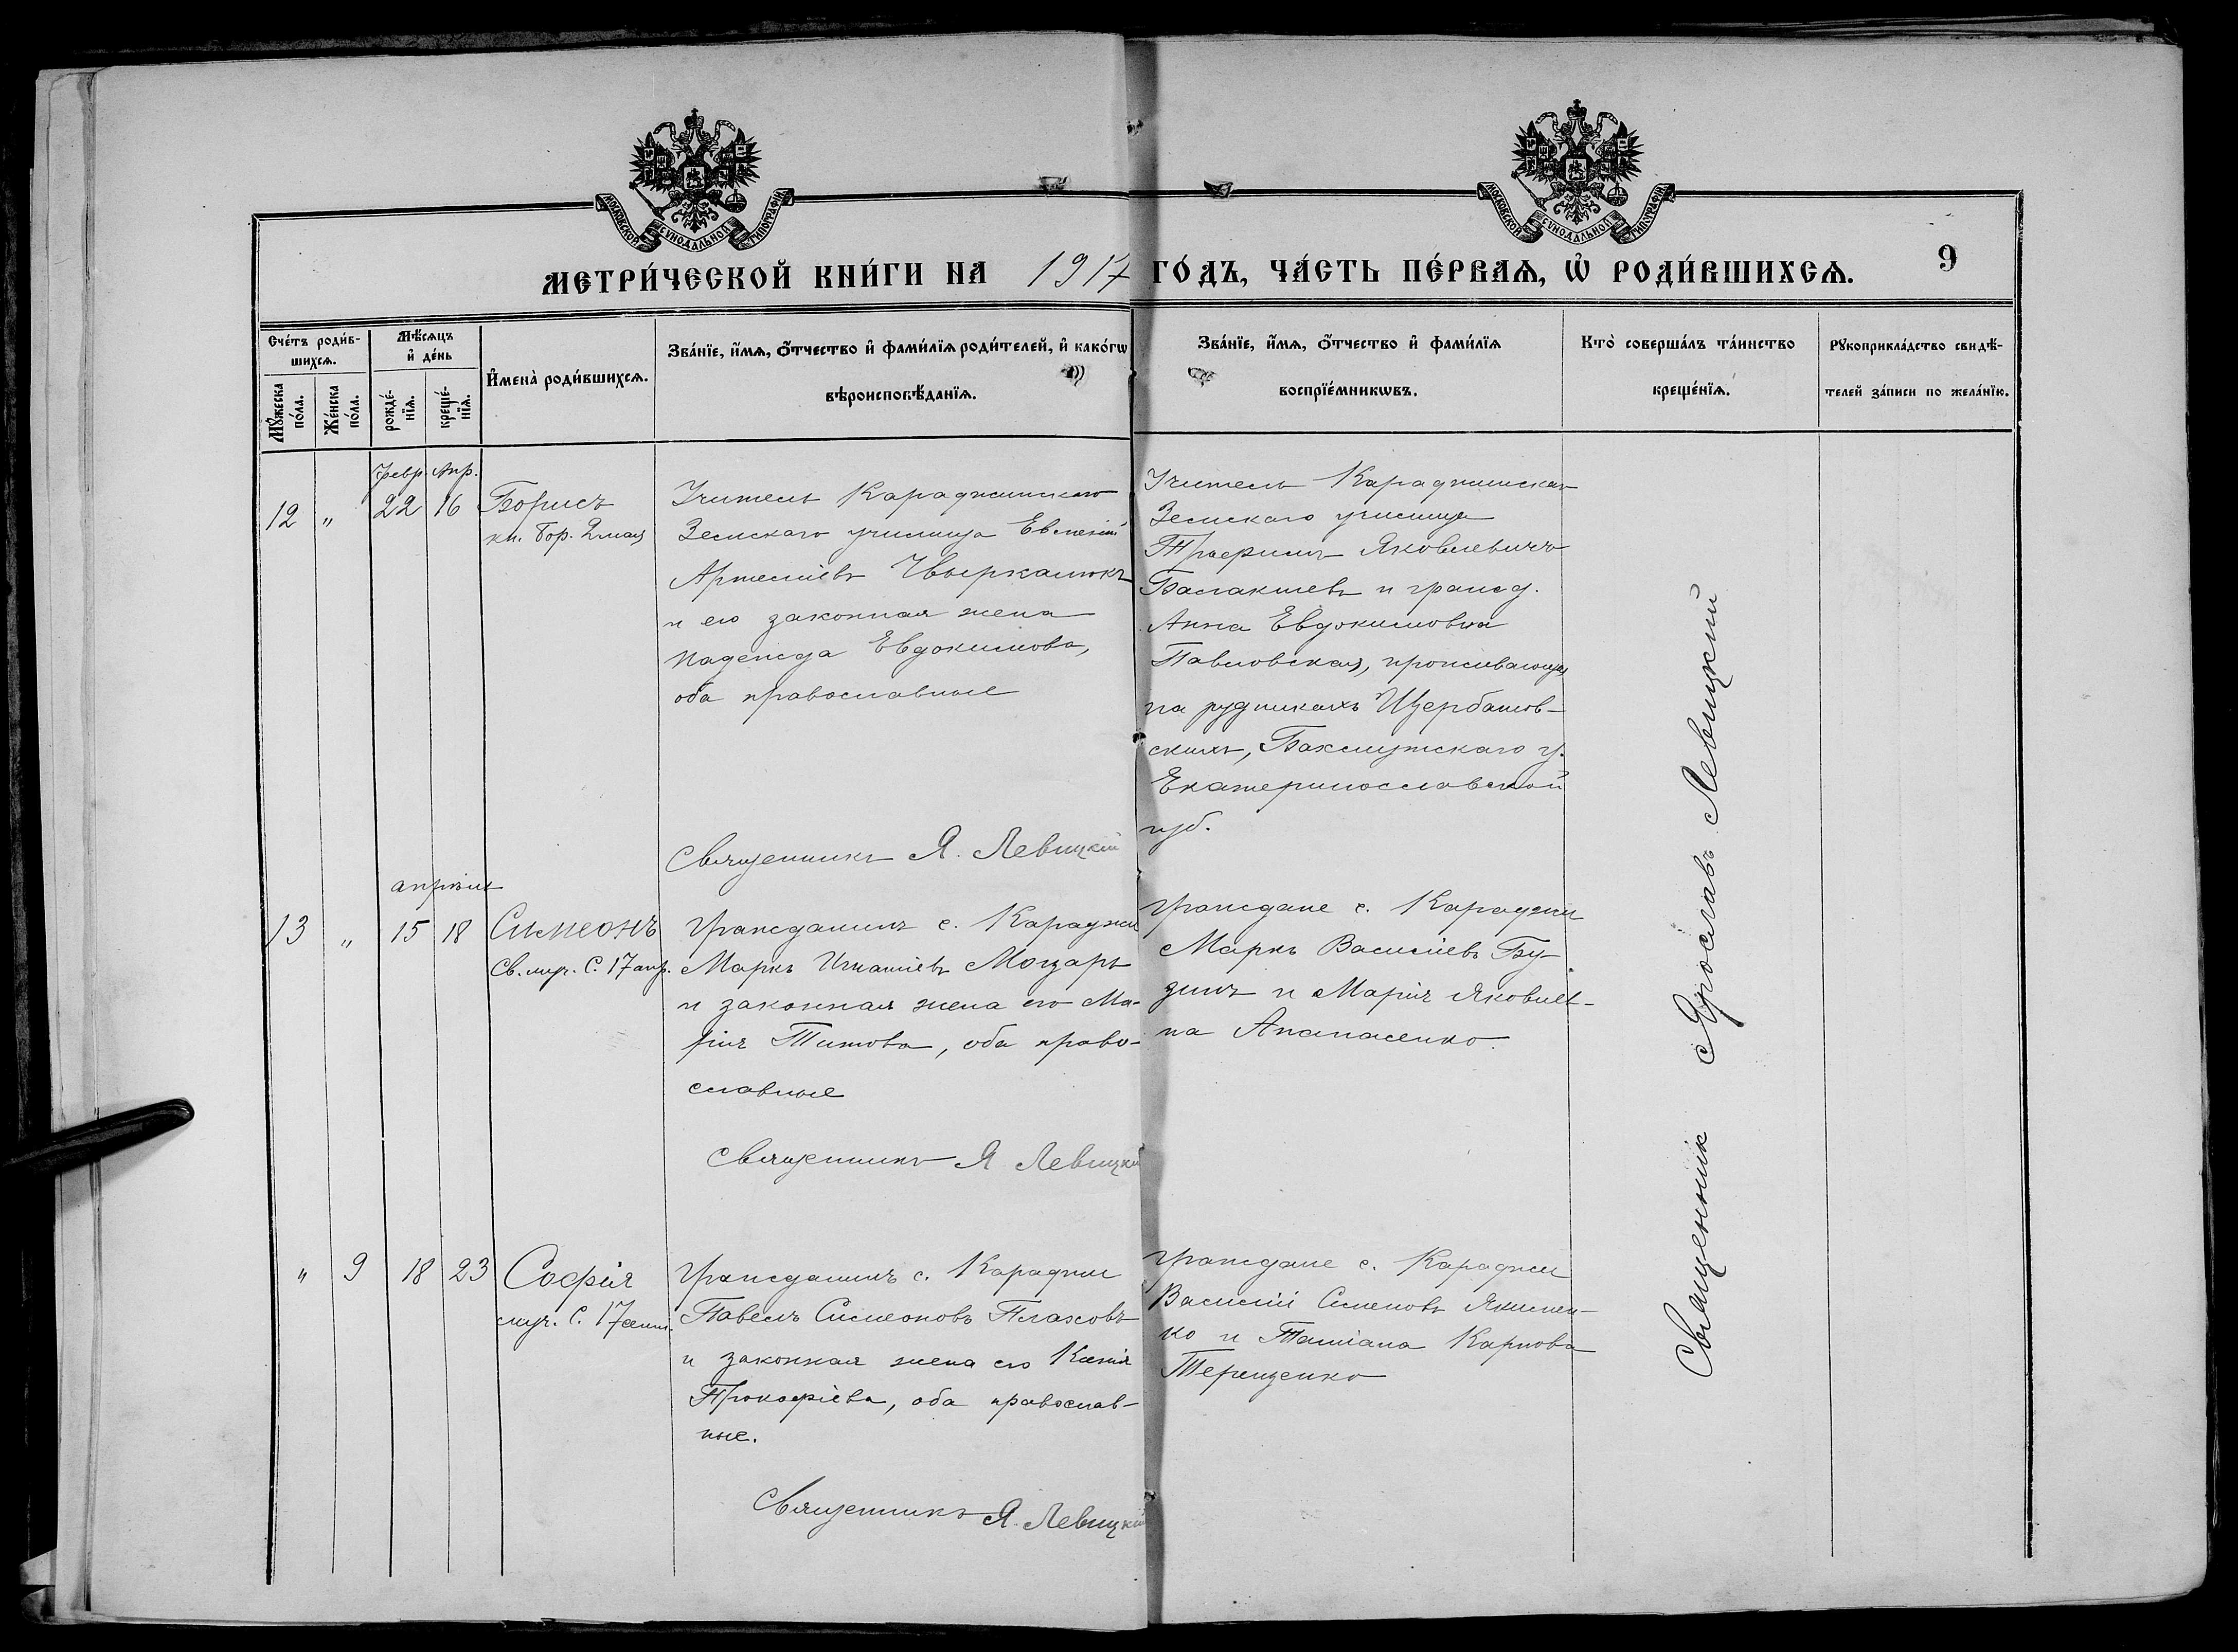 МОСКОВСКОЙ СѴНОДАЛЬНОЙ ТИПОГРАФІИ
МОСКОВСКОЙ СѴНОДАЛЬНОЙ ТИПОГРАФІИ
МЕТРИ́ЧЕСКОЙ КНИ́ГИ НА 1917 ГО́ДЪ, ЧА́СТЬ ПЕ́РВАѦ, Ѡ РОДИ́ВШИХСѦ.
9
Сче́тъ роди́в-
шихсѧ.
Мꙋ́жеска
по́ла.
Же́нска
по́ла.
Мѣ́сѧцъ
и҆ де́нь
рожде́-
нїѧ.
креще́-
нїѧ.
И҆мена̀ роди́вшихсѧ.
Зва́нїе, и҆́мѧ, ѻ҆́тчество и҆ фами́лїѧ роди́телей, и҆ како́гѡ
вѣроисповѣ́данїѧ.
Зва́нїе, и҆́мѧ, ѻ҆́тчество и҆ фами́лїѧ
воспрїе́мникѡвъ.
Кто̀ соверша́лъ та́инство
креще́нїѧ.
Рꙋкоприкла́дство свидѣ́-
телей за́писи по жела́нїю.
Февр. Апр.
12 " 22 16 Борисъ
кн. Бор. 2 мая
Учитель Караджинскаго
Земскаго училища Евгеній
Артеміевъ Чвыркалюкъ
и его законная жена
Надежда Евдокимова,
оба православные
Священникъ Я. Левицкій
Учитель Караджинскаго
Земскаго училища
Трифиль Яковлевичъ
Балакшевъ и гражд.
Анна Евдокимовна
Павловская, проживающая
на рудникахъ Щербанов-
скихъ, Бахмутскаго у.
Екатеринославской
губ.
апрѣль
13 " 15 18 Симеонъ
Св. муч. С. 17 апр.
Гражданинъ с. Караджи
Маркъ Игнатіевъ Моцарь
и законная жена его Ма-
рія Титова, оба право-
славные
Священникъ Я Левицкій
Граждане с. Караджи
Маркъ Василіевъ Бу-
зинъ и Марія Яковлев-
на Апанасенко.
" 9 18 23 Софія
муч. С. 17 сент.
Гражданинъ с. Караджи
Павелъ Симеоновъ Плаховъ
и законная жена его Ксенія
Прокофіева, оба православ-
ные.
Священникъ Я. Левицкій
Граждане с. Караджи
Василій Семеновъ Якимен-
ко и Татіана Карпова
Терещенко
Священник Ярославъ Левицкий